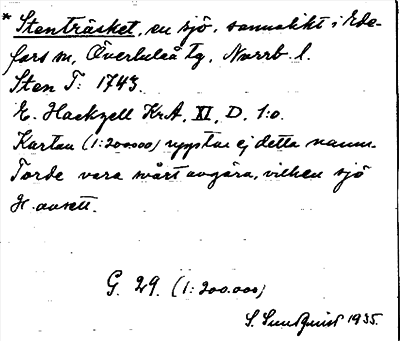 * Stenträsket, en sjö, sannolikt i Ede-
fors sn, Överluleå tg, Norrb. l.
Sten T: 1743.
E. Hackzell KrA, XI, D, 1:o.
Kartan (1:200000) upptar ej detta namn.
Torde vara svårt avgöra, vilken sjö
H. avsett.
G. 29. (1:200.000)
S. Sundquist 1935.